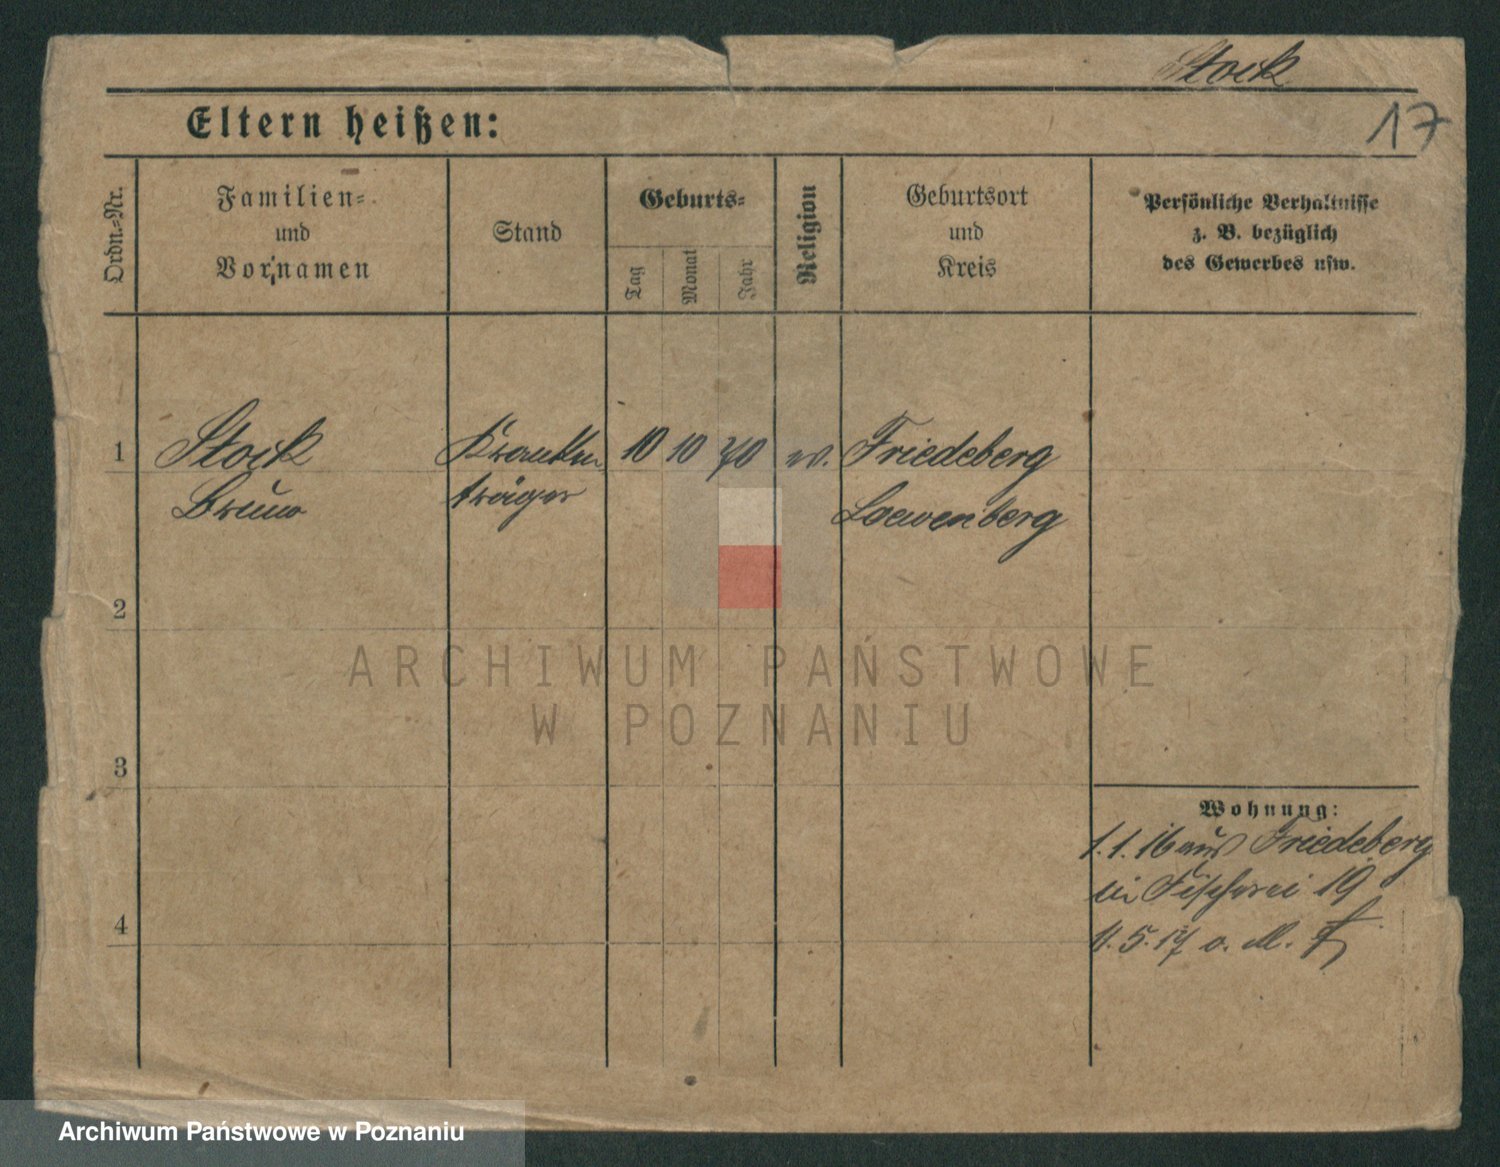 Stock
17
Eltern heißen:
Ordn.-Nr.
Familien-
und
Vornamen
Stand
Geburts-
Tag
Monat
Jahr
Religion
Geburtsort
und
Kreis
Persönliche Verhältnisse
z. B. bezüglich
des Gewerbes usw.
1 Stock Kranken 10 10 70 ev. Friedeberg
Bruno träger Loewenberg
2
ARCHIWUM PAŃSTWOWE
W POZNANIU
3
Wohnung:
1.1.16 aus Friedeberg
Fischerei 19
4
5.17 o. M.
Archiwum Państwowe w Poznaniu